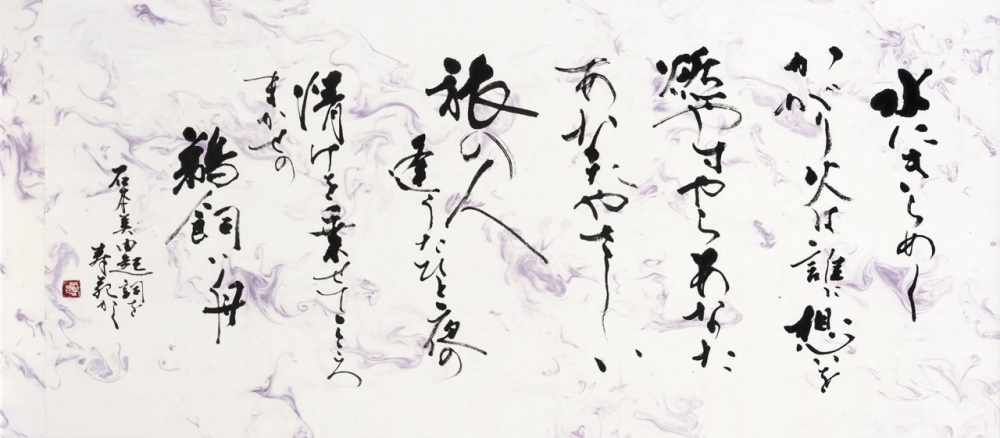 水にきらめく
かがり火は誰に想いを
燃やすやらあなた
あなたやさしい
旅の人
逢うたひと夜の
情けを乗せてこころ
まかせの
鵜飼い舟
石本美由起詞を
かく